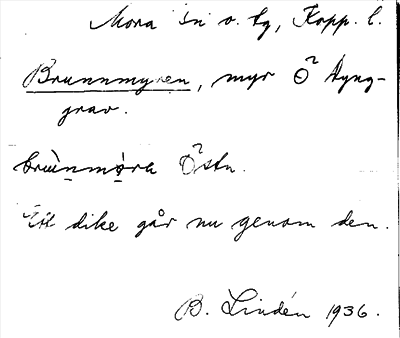 Mora sn o. tg, Kopp. l.
Brunnmyren, myr Ö Hyng-
grav.
Östn.
Ett dike går nu genom den.
B. Lindén 1936.